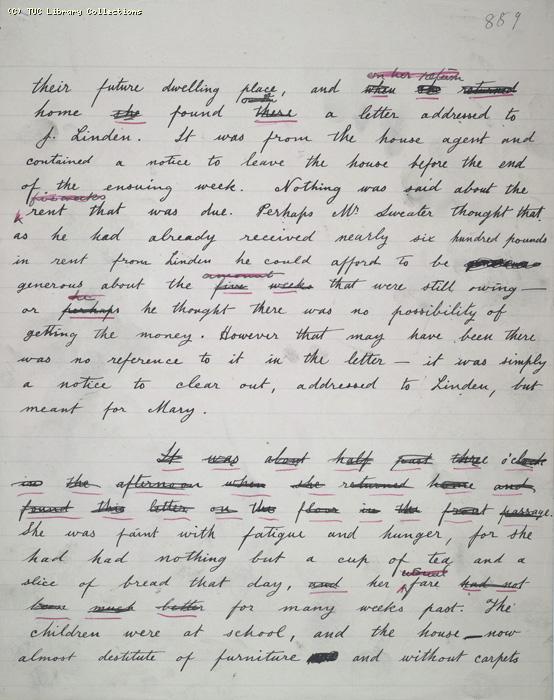 (C) TUC Library Collections
889
on her return
their future dwelling place, and when she returned
only
home she found there a letter addressed to
J. Linden. It was from the house agent and
contained a notice to leave the house before the end
of the ensuing week. Nothing was said about the
five weeks
rent that was due. Perhaps Mr Sweater thought that
as he had already received nearly six hundred pounds
in rent from Linden he could afford to be
amount
generous about the five weeks that were still owing—
he
or perhaps he thought there was no possibility of
getting the money. However that may have been there
was no reference to it in the letter — it was simply
a notice to clear out, addressed to Linden, but
meant for Mary.
It was about half past three o'clock
in the afternoon when she returned home and
found this letter on the floor in the front passage.
She was faint with fatigue and hunger, for she
had had nothing but a cup of tea and a
usual
slice of bread that day, and her fare had not
been much better for many weeks past. The
children were at school, and the house — now
almost destitute of furniture and without carpets